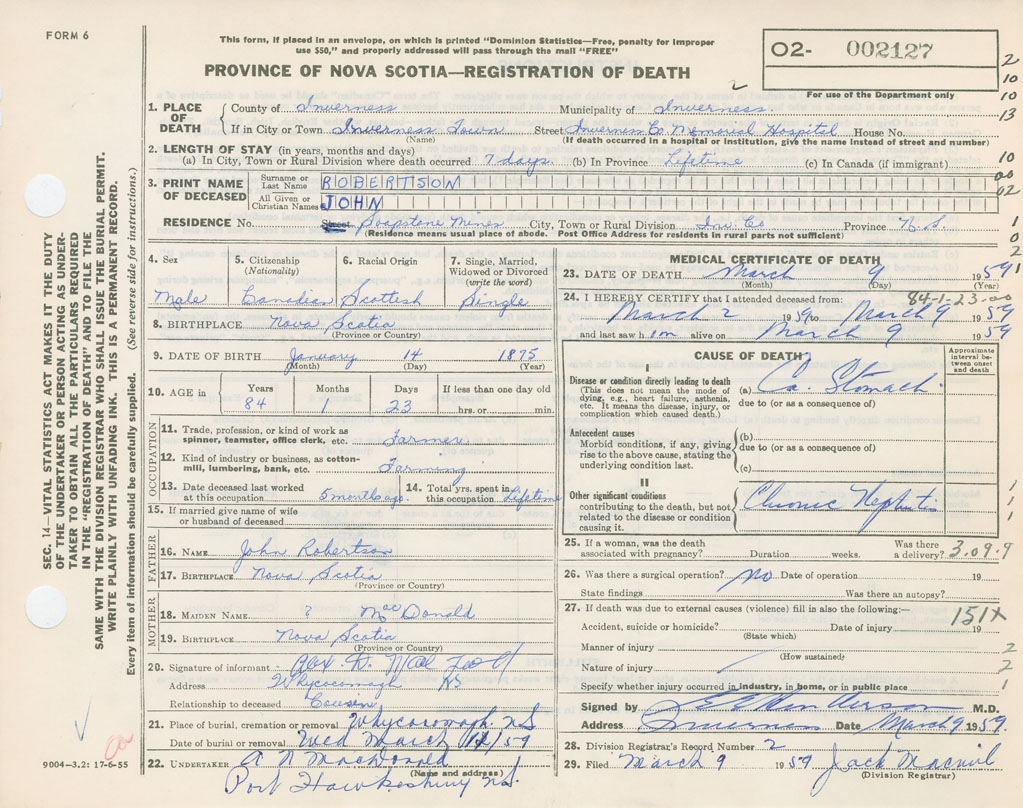 FORM 6
This form, if placed in an envelope, on which is printed "Dominion Statistics—Free, penalty for improper
use $50," and properly addressed will pass through the mail "FREE"
PROVINCE OF NOVA SCOTIA—REGISTRATION OF DEATH
O2- 002127
For use of the Department only
2
10
10
13
1. PLACE OF DEATH
County of Inverness Municipality of Inverness.
If in City or Town Inverness Town Street Inverness Co Memorial Hospital House No.
(Name) (If death occurred in a hospital or institution, give the name instead of street and number)
2. LENGTH OF STAY (in years, months and days)
(a) In City, Town or Rural Division where death occurred 7 days. (b) In Province Lifetime (c) In Canada (if immigrant)
10
00
02
3. PRINT NAME OF DECEASED
Surname or Last Name ROBERTSON
All Given or Christian Names JOHN
RESIDENCE No. Street Soapstone Mines City, Town or Rural Division Inv Co Province N.S.
(Residence means usual place of abode. Post Office Address for residents in rural parts not sufficient)
1
0
2
1
4. Sex
Male
5. Citizenship
(Nationality)
Canadian
6. Racial Origin
Scottish
7. Single, Married,
Widowed or Divorced
(write the word)
Single
8. BIRTHPLACE Nova Scotia
(Province or Country)
9. DATE OF BIRTH January 14 1875
(Month) (Day) (Year)
10. AGE in
Years Months Days If less than one day old
84 1 23 hrs. or min.
OCCUPATION
11. Trade, profession, or kind of work as
spinner, teamster, office clerk, etc. Farmer
12. Kind of industry or business, as cotton-
mill, lumbering, bank, etc. Farming
13. Date deceased last worked
at this occupation 5 months ago.
14. Total yrs. spent in
this occupation Lifetime
15. If married give name of wife
or husband of deceased
FATHER
16. NAME John Robertson
17. BIRTHPLACE Nova Scotia
(Province or Country)
MOTHER
18. MAIDEN NAME ? MacDonald
19. BIRTHPLACE Nova Scotia
(Province or Country)
20. Signature of informant
Address Whycocomagh NS
Relationship to deceased Cousin
21. Place of burial, cremation or removal Whycocomagh. NS
Date of burial or removal Wed March /59
22. UNDERTAKER A N MacDonald
(Name and address)
Port Hawkesbury N.S.
MEDICAL CERTIFICATE OF DEATH
23. DATE OF DEATH March 9 1959
(Month) (Day) (Year)
84-1-23-00
24. I HEREBY CERTIFY that I attended deceased from:
March 2 1959 to March 9 1959
and last saw him alive on March 9 1959
CAUSE OF DEATH
Approximate
interval be-
tween onset
and death
I
Disease or condition directly leading to death
(This does not mean the mode of
dying, e.g., heart failure, asthenia,
etc. It means the disease, injury, or
complication which caused death.)
(a) Ca. Stomach.
due to (or as a consequence of)
Antecedent causes
Morbid conditions, if any, giving
rise to the above cause, stating the
underlying condition last.
(b)
due to (or as a consequence of)
(c)
II
Other significant conditions
contributing to the death, but not
related to the disease or condition
causing it.
Chronic Nephritis
1
1
1
25. If a woman, was the death
associated with pregnancy? Duration weeks. Was there
a delivery?
3.09.9
26. Was there a surgical operation? No Date of operation 19
State findings Was there an autopsy?
27. If death was due to external causes (violence) fill in also the following:—
151X
Accident, suicide or homicide? Date of injury 19
(State which)
Manner of injury 2
(How sustained)
Nature of injury 2
Specify whether injury occurred in industry, in home, or in public place 1
Signed by M.D.
Address Inverness Date March 9 1959.
28. Division Registrar's Record Number 2
29. Filed March 9 1959 Jack Macneil
(Division Registrar)
SEC. 14—VITAL STATISTICS ACT MAKES IT THE DUTY
OF THE UNDERTAKER OR PERSON ACTING AS UNDER-
TAKER TO OBTAIN ALL THE PARTICULARS REQUIRED
IN THE "REGISTRATION OF DEATH" AND TO FILE THE
SAME WITH THE DIVISION REGISTRAR WHO SHALL ISSUE THE BURIAL PERMIT.
WRITE PLAINLY WITH UNFADING INK. THIS IS A PERMANENT RECORD.
Every item of information should be carefully supplied. (See reverse side for instructions.)
ca
9004-3.2: 17-6-55